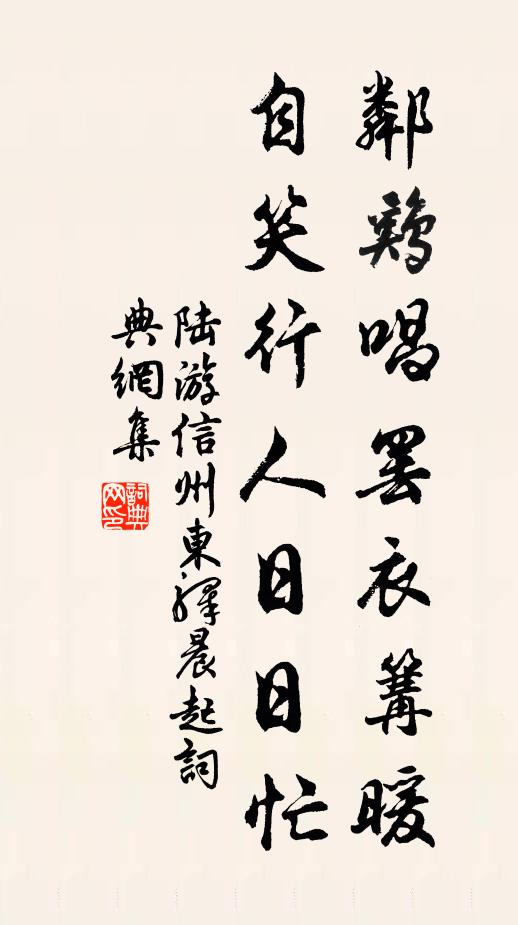 鄰鷄唱罷衣篝暖
自笑行人日日忙
陸游信州東驛晨起詞
典網集
詞典网印